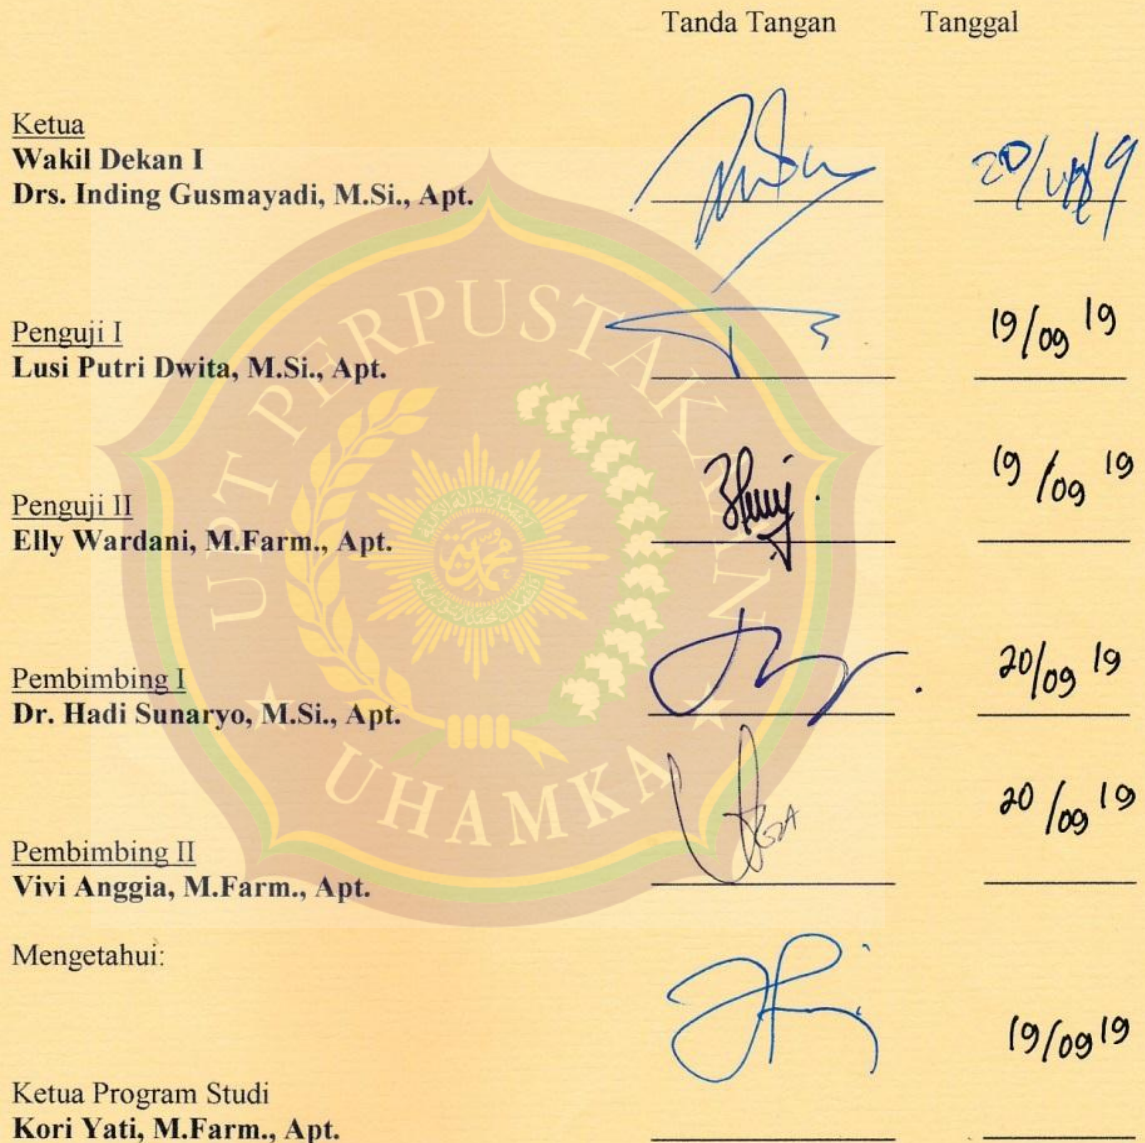 Tanda Tangan Tanggal
Ketua
Wakil Dekan I
Drs. Inding Gusmayadi, M.Si., Apt.
Penguji I
Lusi Putri Dwita, M.Si., Apt.
19/09 19
Penguji II
Elly Wardani, M.Farm., Apt.
19/09 19
Pembimbing I
Dr. Hadi Sunaryo, M.Si., Apt.
20/09 19
Pembimbing II
Vivi Anggia, M.Farm., Apt.
20/09 19
Mengetahui:
Ketua Program Studi
Kori Yati, M.Farm., Apt.
19/09 19
UPT PERPUSTAKAAN
UHAMKA